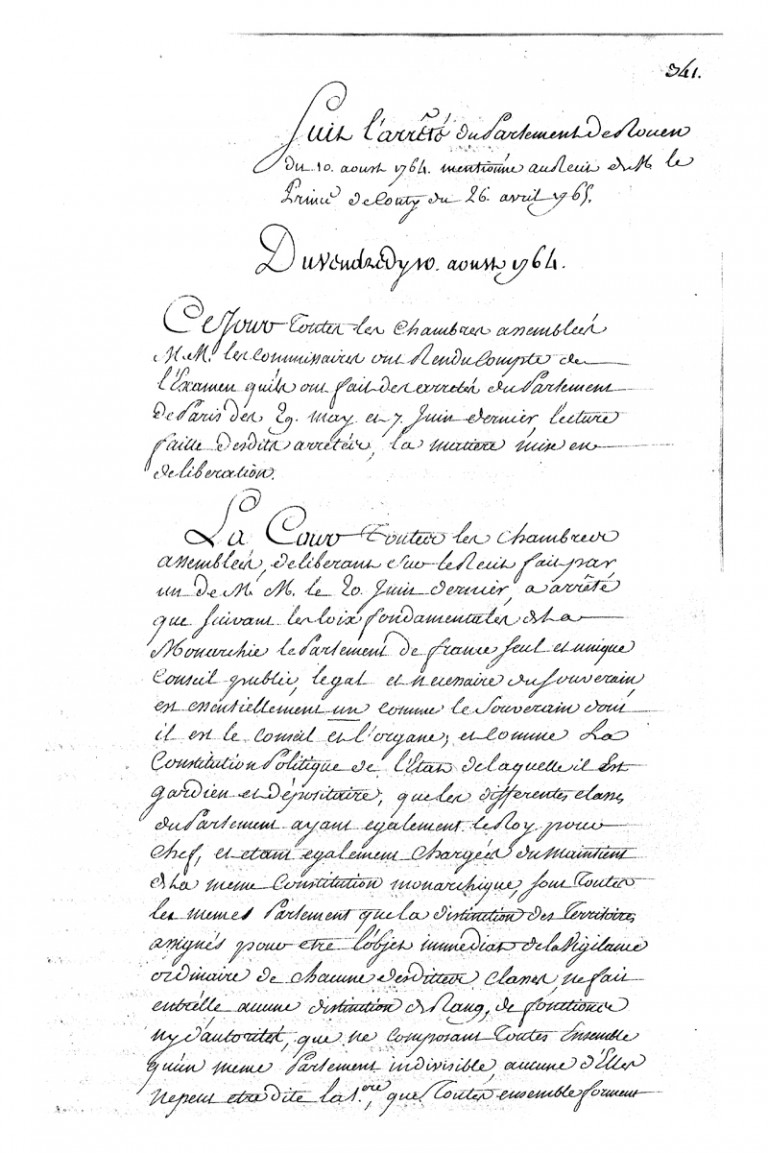 341.
Suit l'arrêté du Parlement de Rouen
du 10. aoust 1764. mentionné au Recit de M. le
Prince de Conty du 26. avril 1765.
Du Vendredy 10. aoust 1764.
Ce Jour Toutes les Chambres assemblées
M.M. les Commissaires ont Rendu Compte de
l'Examen qu'ils ont fait des arretés du Parlement
de Paris des 29. may et 7. Juin dernier, lecture
faitte desdits arretés, la matiere mise en
deliberation.
La Cour Toutes les Chambres
assemblées, deliberant sur le Recit fait par
un de M.M. le 20. Juin dernier, a arrêté
que suivant les loix fondamentales de la
Monarchie le Parlement de france seul et unique
Conseil public, legal et necessaire du Souverain,
est essentiellement un comme le Souverain dont
il est le Conseil et l'organe, et Comme La
Constitution Politique de l'Etat de laquelle il Est
gardien et dépositaire, que les differentes classes
du Parlement ayant egalement le Roy pour
Chef, et etant egalement Chargées du Maintient
de La meme Constitution monarchique, sont Toutes
les memes Parlement que la distinction des Territoires
assignés pour etre l'objet immediat de la Vigilance
ordinaire de Chacune desdittes Classes, ne fait
entr'elle aucune distinction de Rang, de fonctions
ny d'autorité, que ne Composant Toutes Ensemble
qu'un meme Parlement indivisible, aucune d'Elles
ne peut etre dite la 1.ere, que Toutes ensemble forment